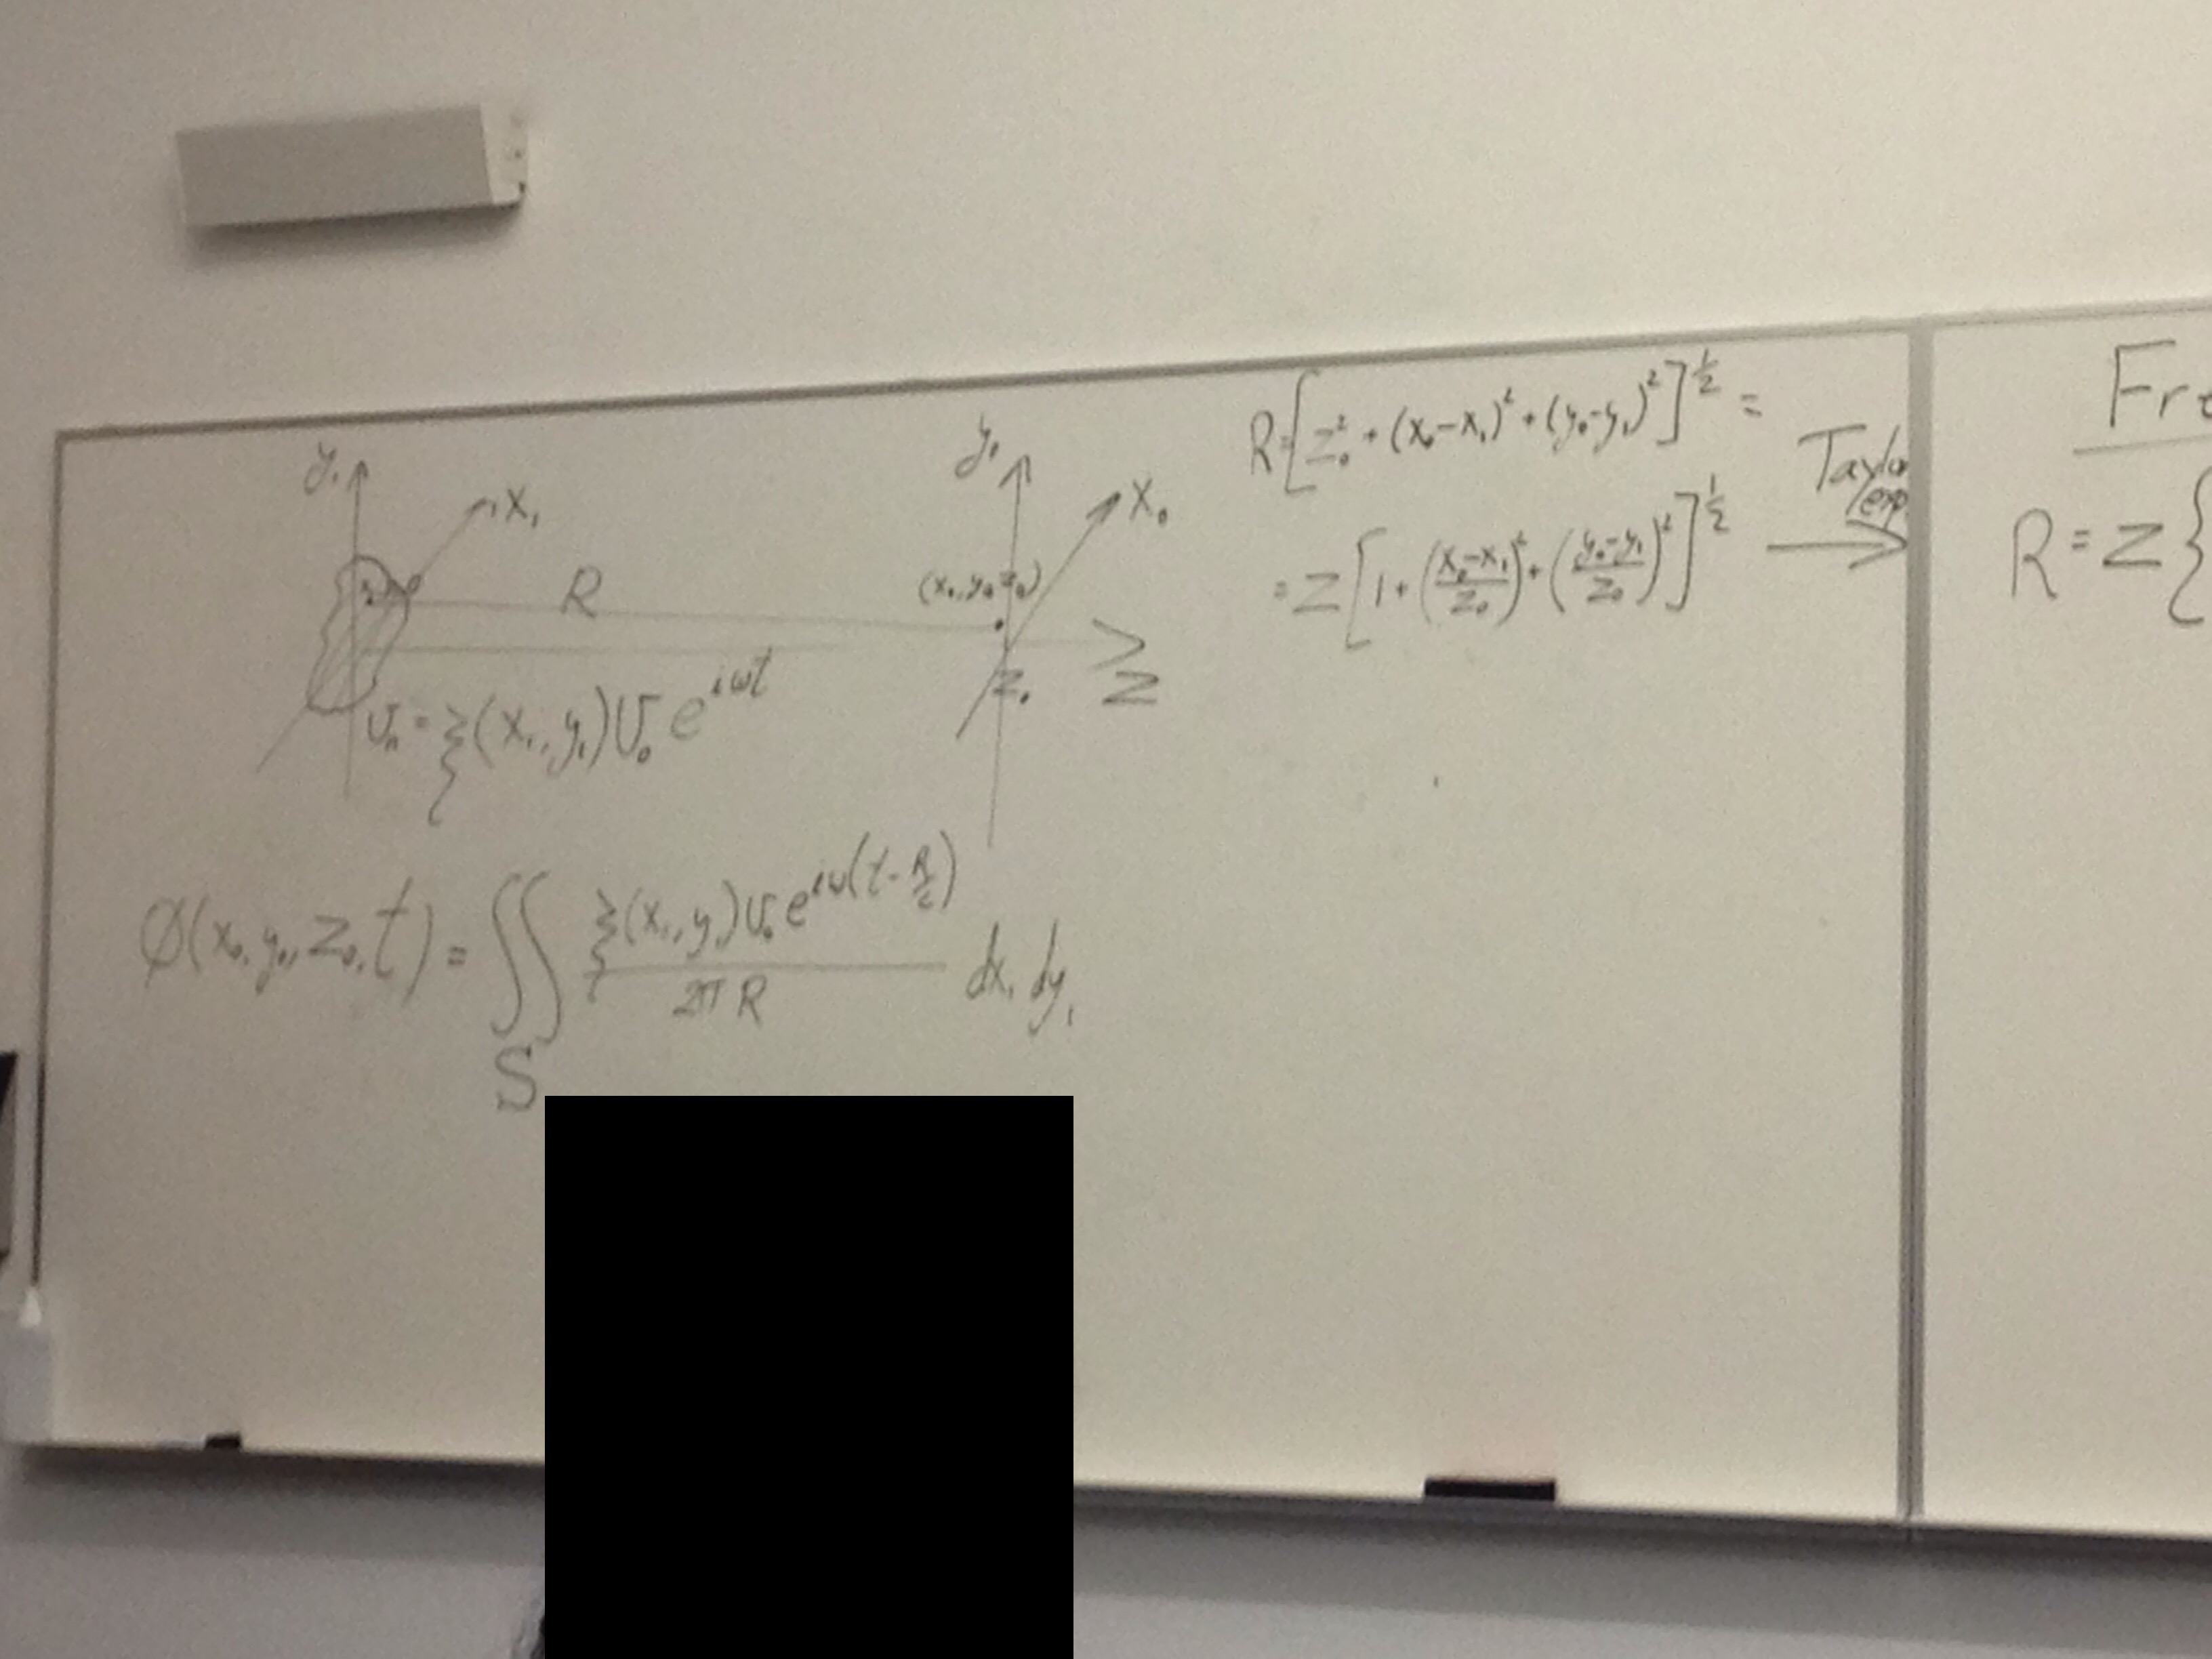 y₁
x₁
R
y₀
x₀
(x₀, y₀, z₀)
z₀
Z
Uₙ = ξ(x₁, y₁)U₀ e^{iωt}
ϕ(x₀, y₀, z₀, t) = ∬_S ξ(x₁, y₁)U₀ e^{iω(t - R/c)} / 2πR dx₁ dy₁
R = [z₀² + (x₀-x₁)² + (y₀-y₁)²]^{1/2} =
= Z[1 + ((x₀-x₁)/z₀)² + ((y₀-y₁)/z₀)²]^{1/2}
Taylor
exp
Fre
R = Z {